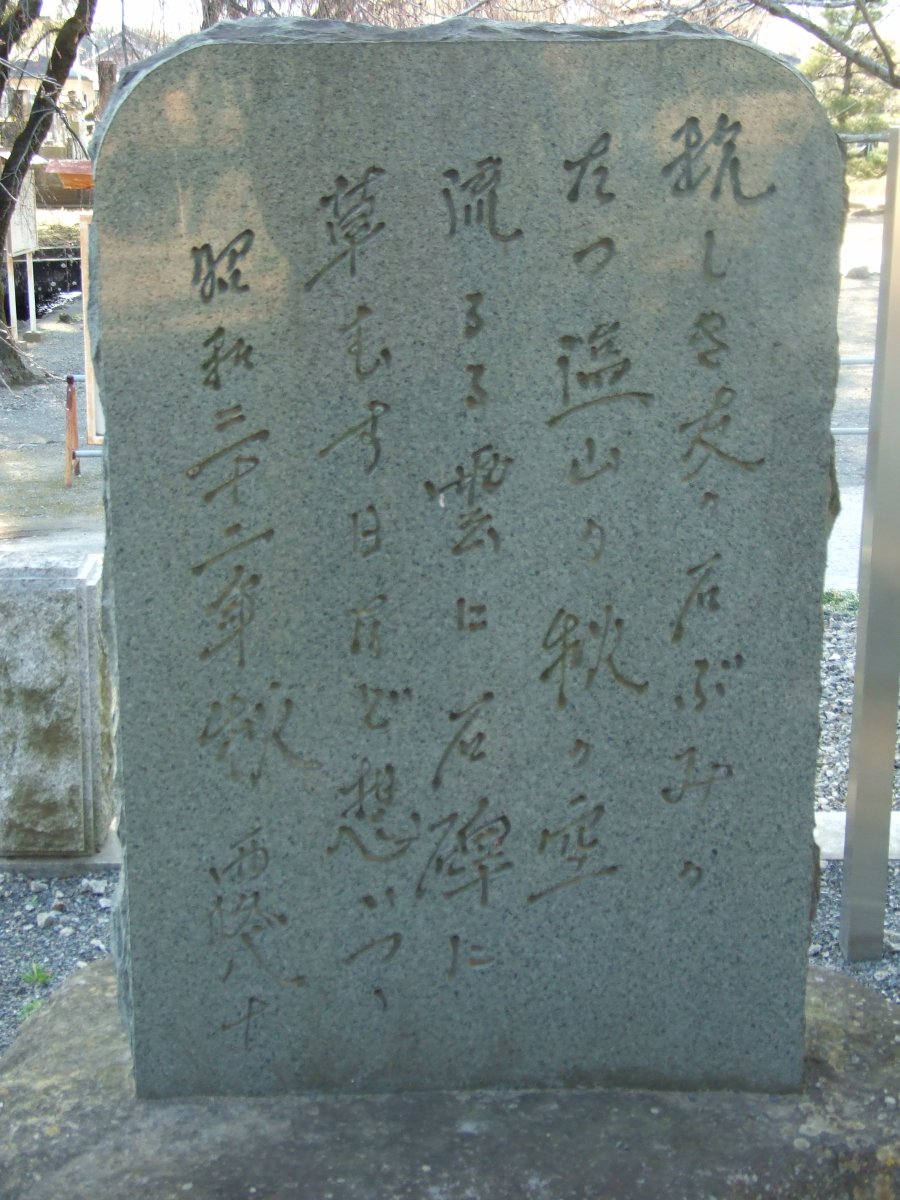 親しき友の石ぶみの
たつ塩山の秋の空
流るる雲に石碑に
草むす日など想いつつ
昭和二十二年秋 西條八十